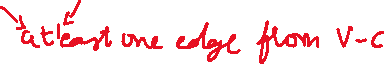 atleast one edge from V-C